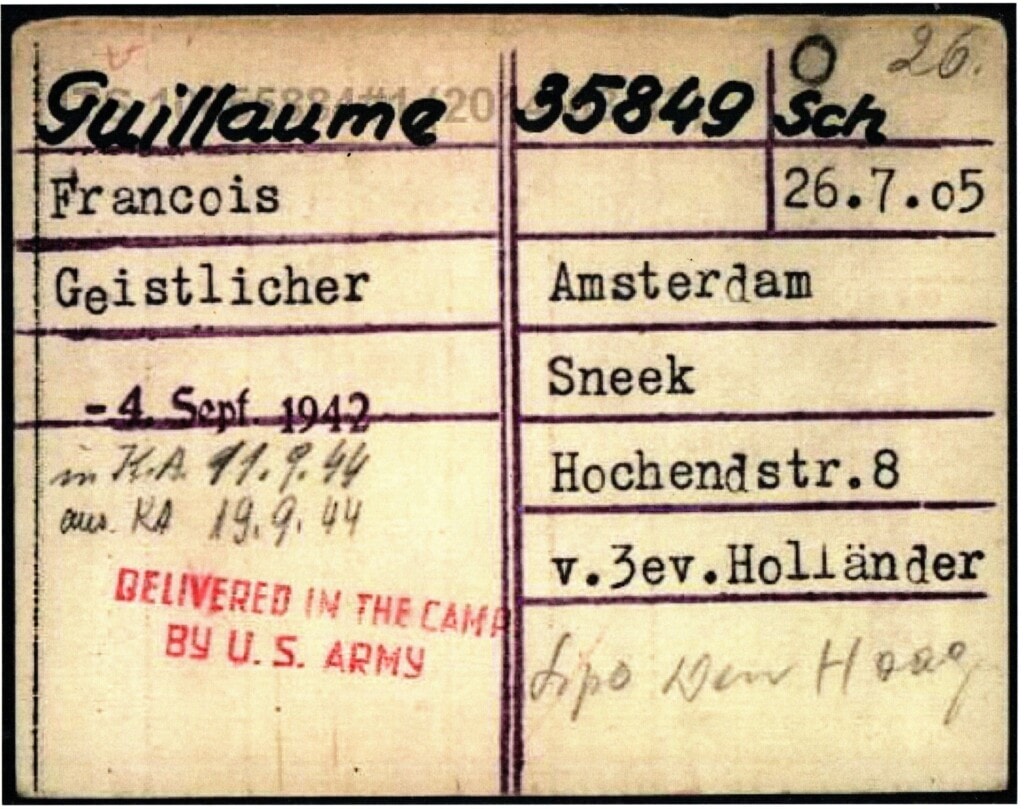 26.
Guillaume 35849 Sch
Francois 26.7.05
Geistlicher Amsterdam
Sneek
-4. Sept. 1942
in K.A. 11.9.44
Hochendstr.8
aus. KA 19.9.44
v.3ev.Holländer
DELIVERED IN THE CAMP
BY U. S. ARMY
Sipo Den Haag